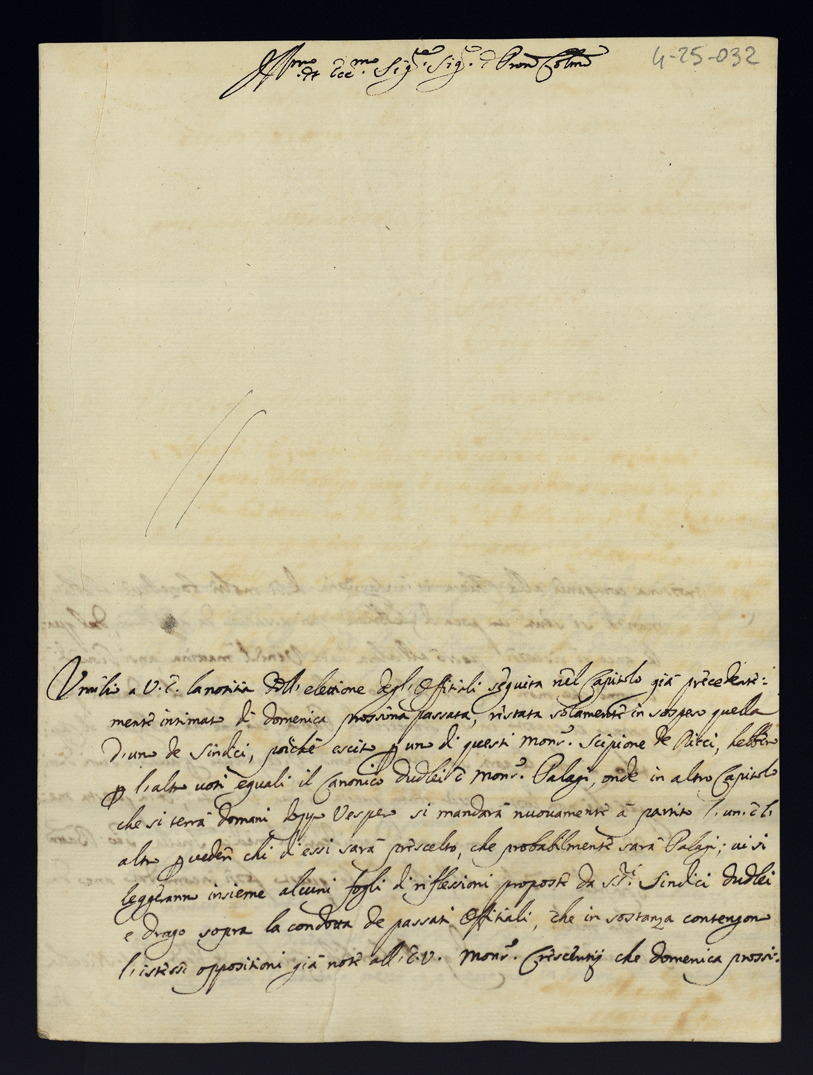 4-25-032
Ill.mo et Ecc.mo Sig.re Sig.re e Pron Colmo
Umilio a V.E. la notitia dell'elettione degl'Offitiali seguita nel Capitolo già precedente:
mente intimato di domenica prossima passata, restata solamente in sospeso quella
d'uno de Sindici, poiche escito p uno di questi Mons.r Scipione de Ricci, hebber
p l'altro voti eguali il Canonico Dudlei e Mons.r Palagi, onde in altro Capitolo
che si terrà domani dopo Vespro si mandarà nuovamente à partito l'un e l'
altro p veder chi d'essi sarà prescelto, che probabilmente sarà Palagi; vi si
leggeranno insieme alcuni fogli di riflessioni proposte da s.ti Sindici Dudlei
e Drago sopra la condotta de passati Offitiali, che in sostanza contengono
l'istesse oppositioni già note all'E.V. Mons.r Crescenzij che domenica prossi: